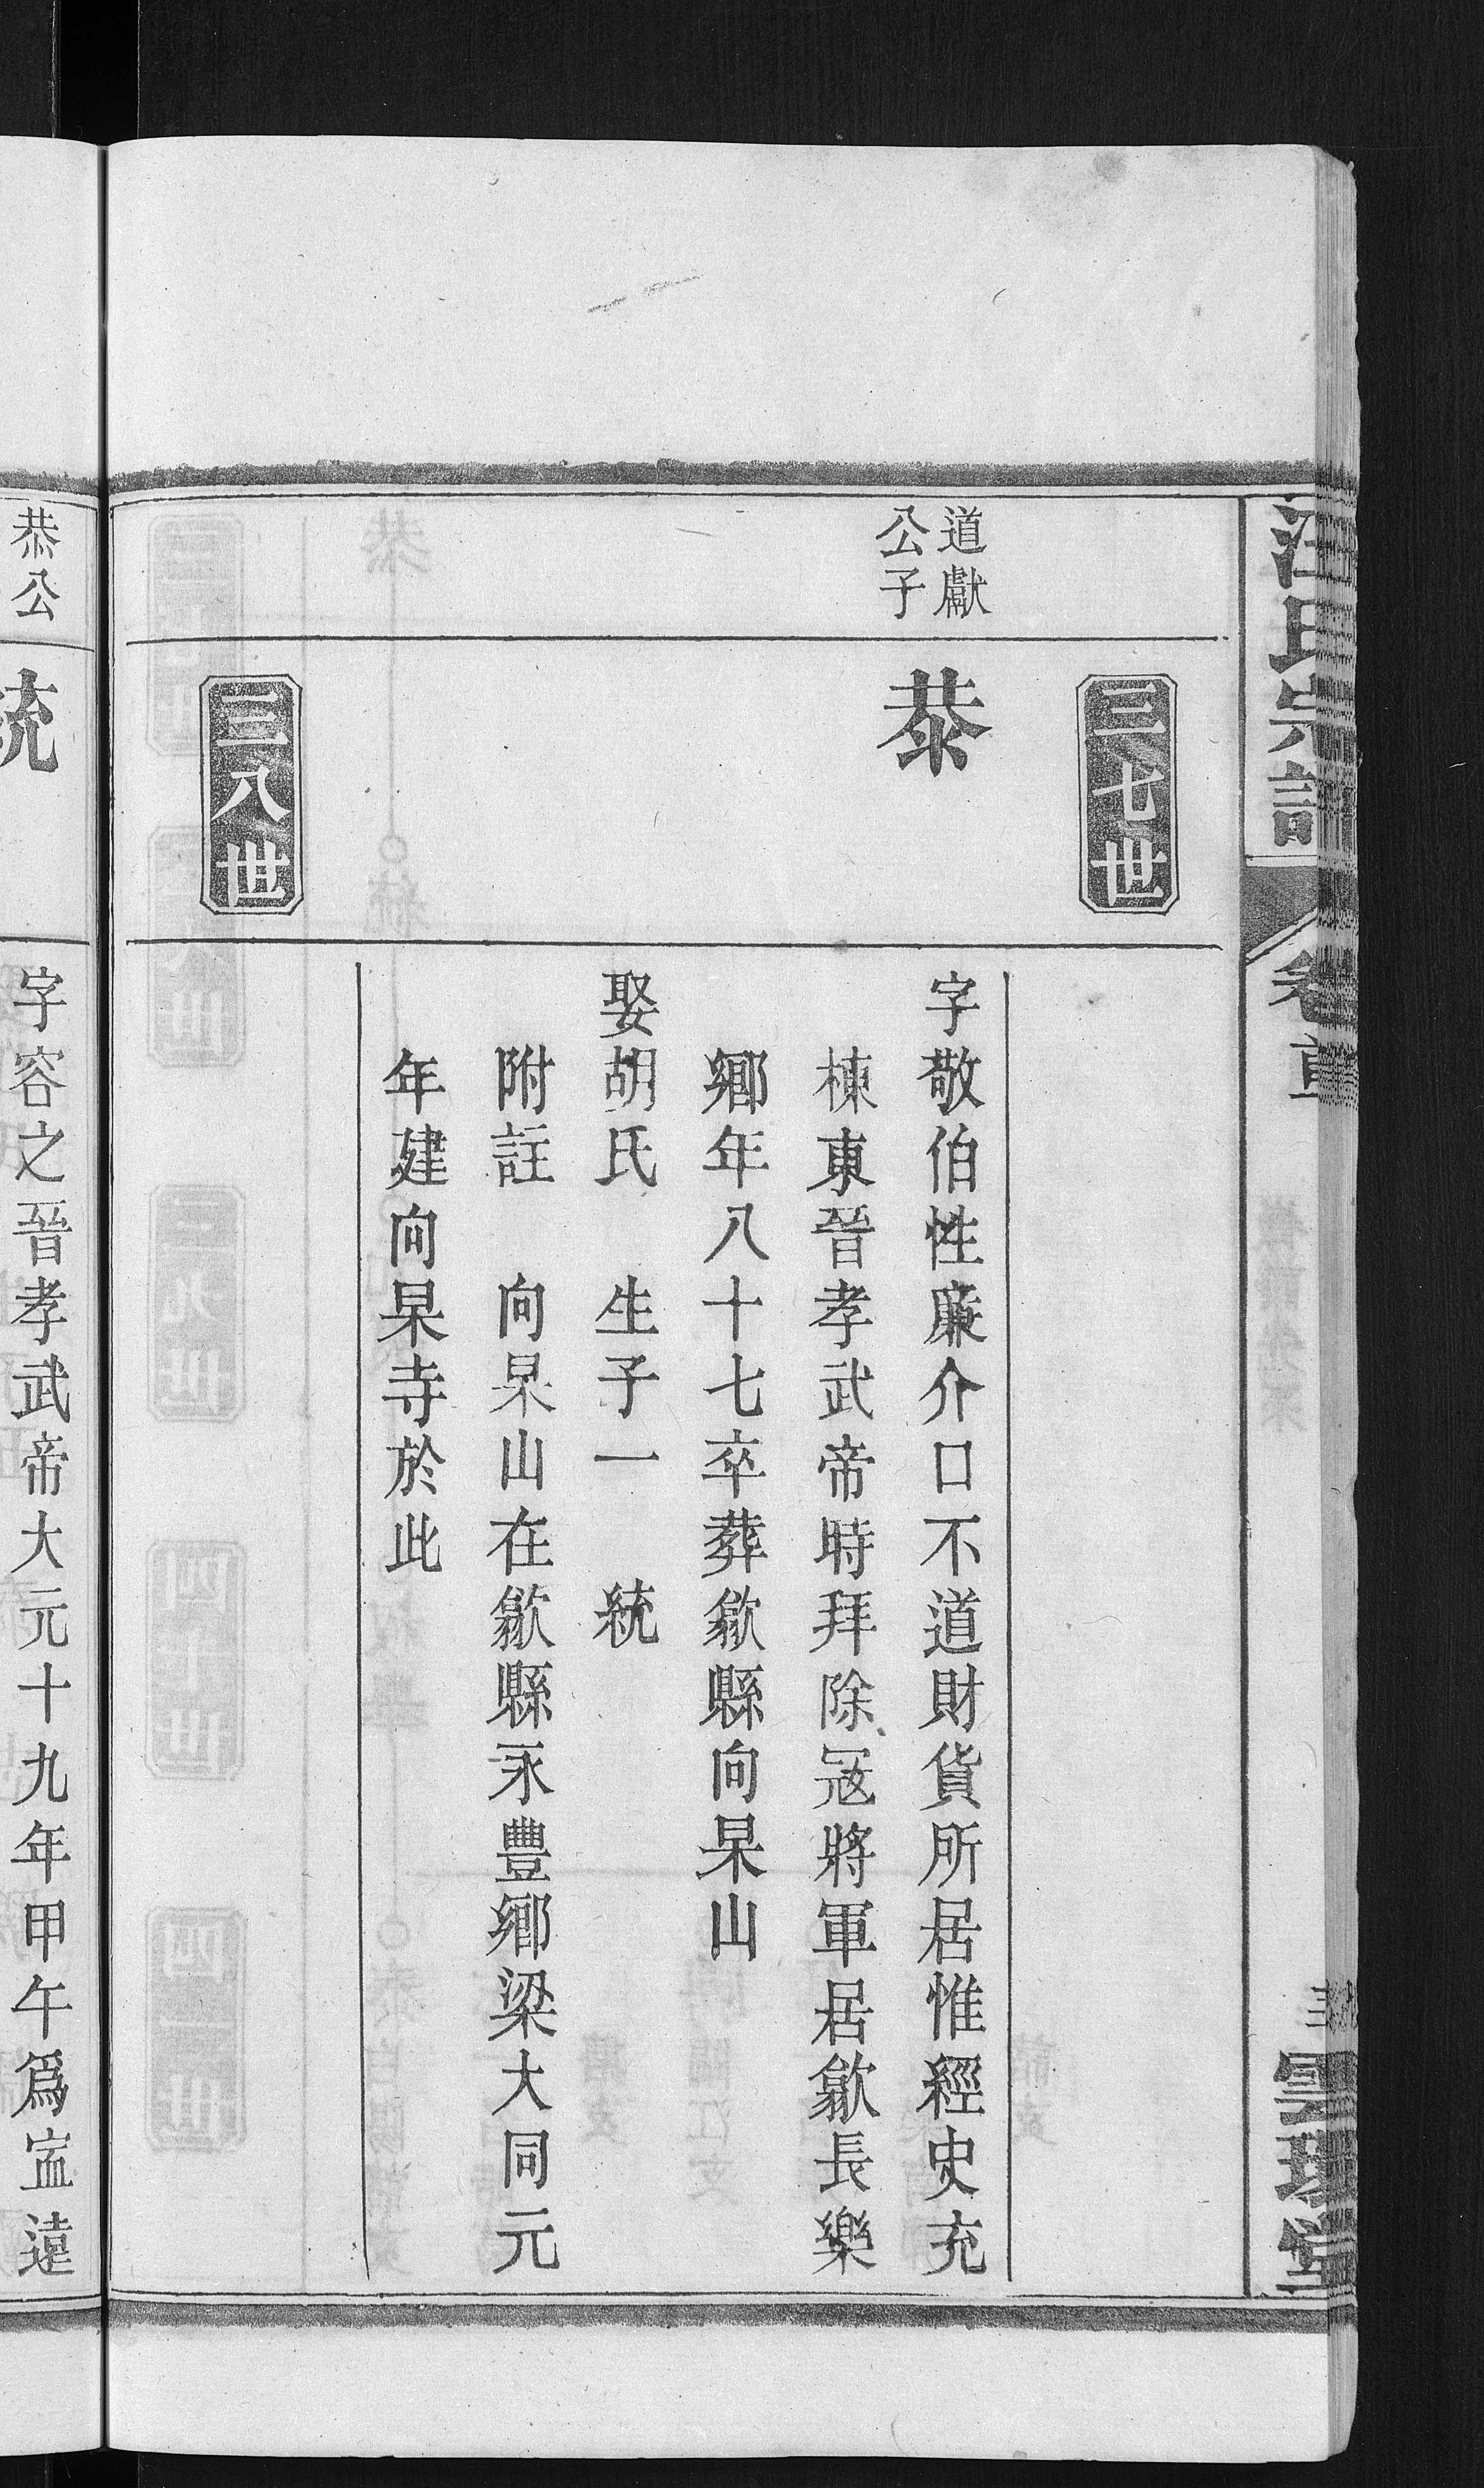 汪氏宗譜
卷首
三七世
道獻
公子
恭
字敬伯性廉介口不道財貨所居惟經史充
棟東晉孝武帝時拜除寇將軍居歙長樂
鄉年八十七卒葬歙縣向杲山
娶胡氏 生子一 統
附註 向杲山在歙縣永豐鄉梁大同元
年建向杲寺於此
三八世
恭公
統
字容之晉孝武帝大元十九年甲午爲寍遠